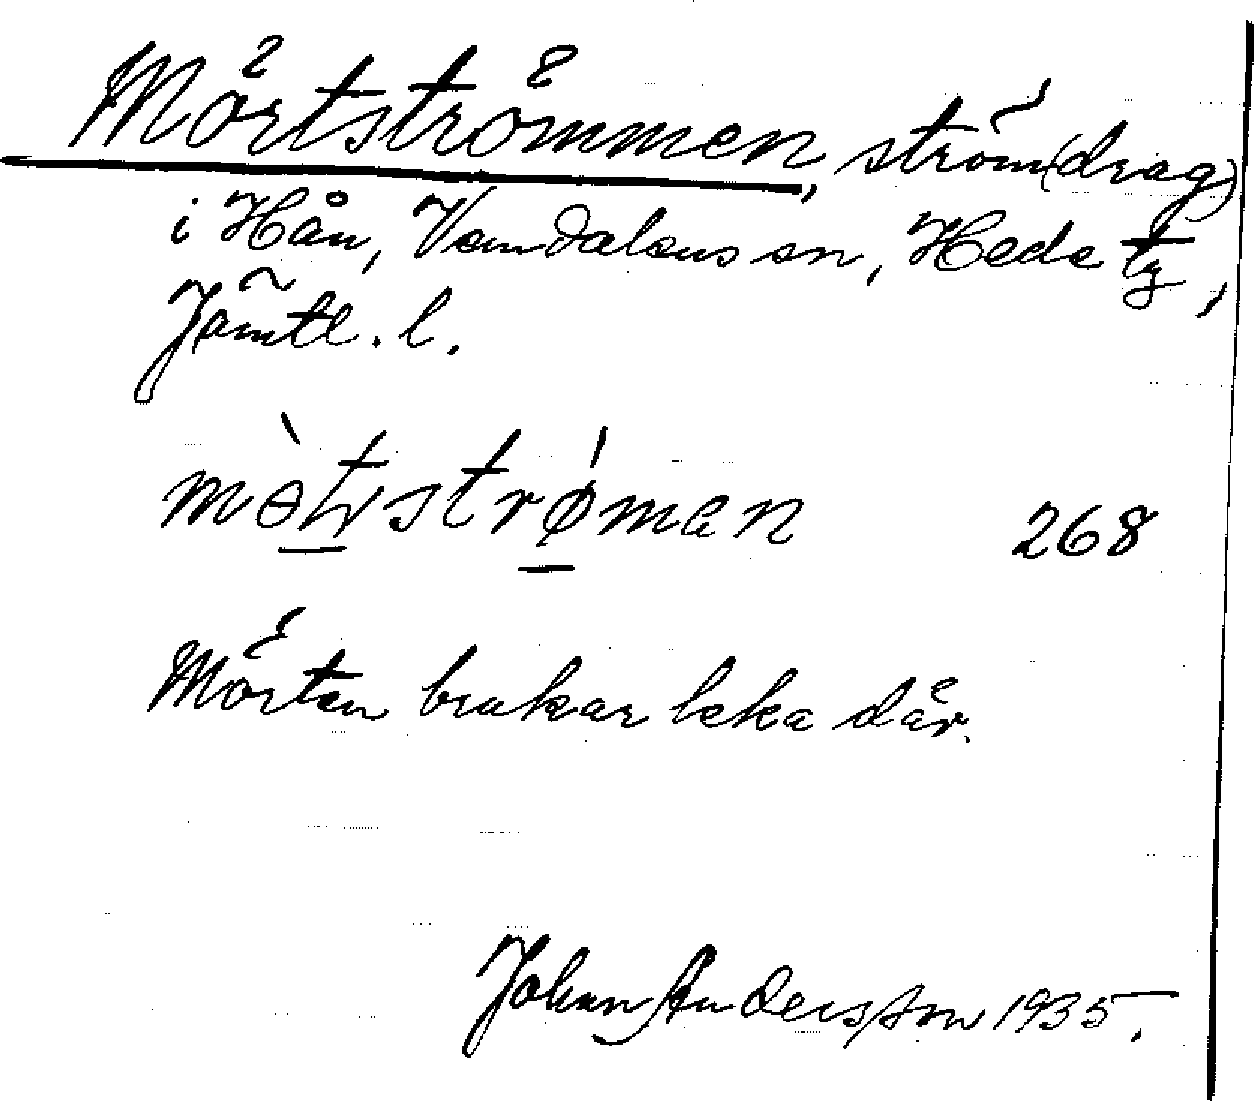 Mörtströmmen, ström(drag)
i Hån, Vemdalens sn, Hede tg,
Jämtl. l.
mɵ̀tʂtrǿmen 268
Mörten brukar leka där.
Johan Andersson 1935.